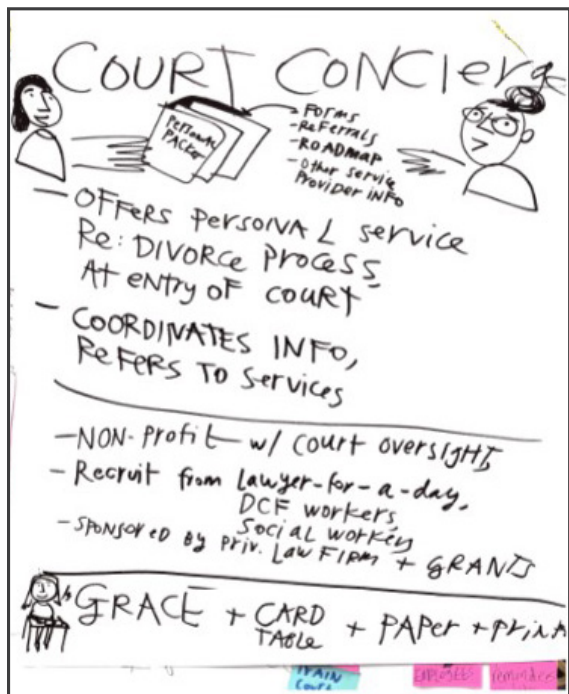 COURT CONCIerg
Personal
PACKet
- FORMS
- ReFerrALs
- ROADMAP
- Other service
Provider INFO
- OFFers PersONAL service
Re: DIVORCE Process
At entry OF COURT
- COORDINATES INFO,
ReFERS TO Services
- NON-Profit w/ COURT OVERSIGHT
- Recruit from Lawyer-for-a-day,
DCF workers,
Social workers
- SPONSOred By Priv. Law FIRM + GRANTS
GRACE + CARD TABLE + PAPer + print
EMPLOYEES
reminders